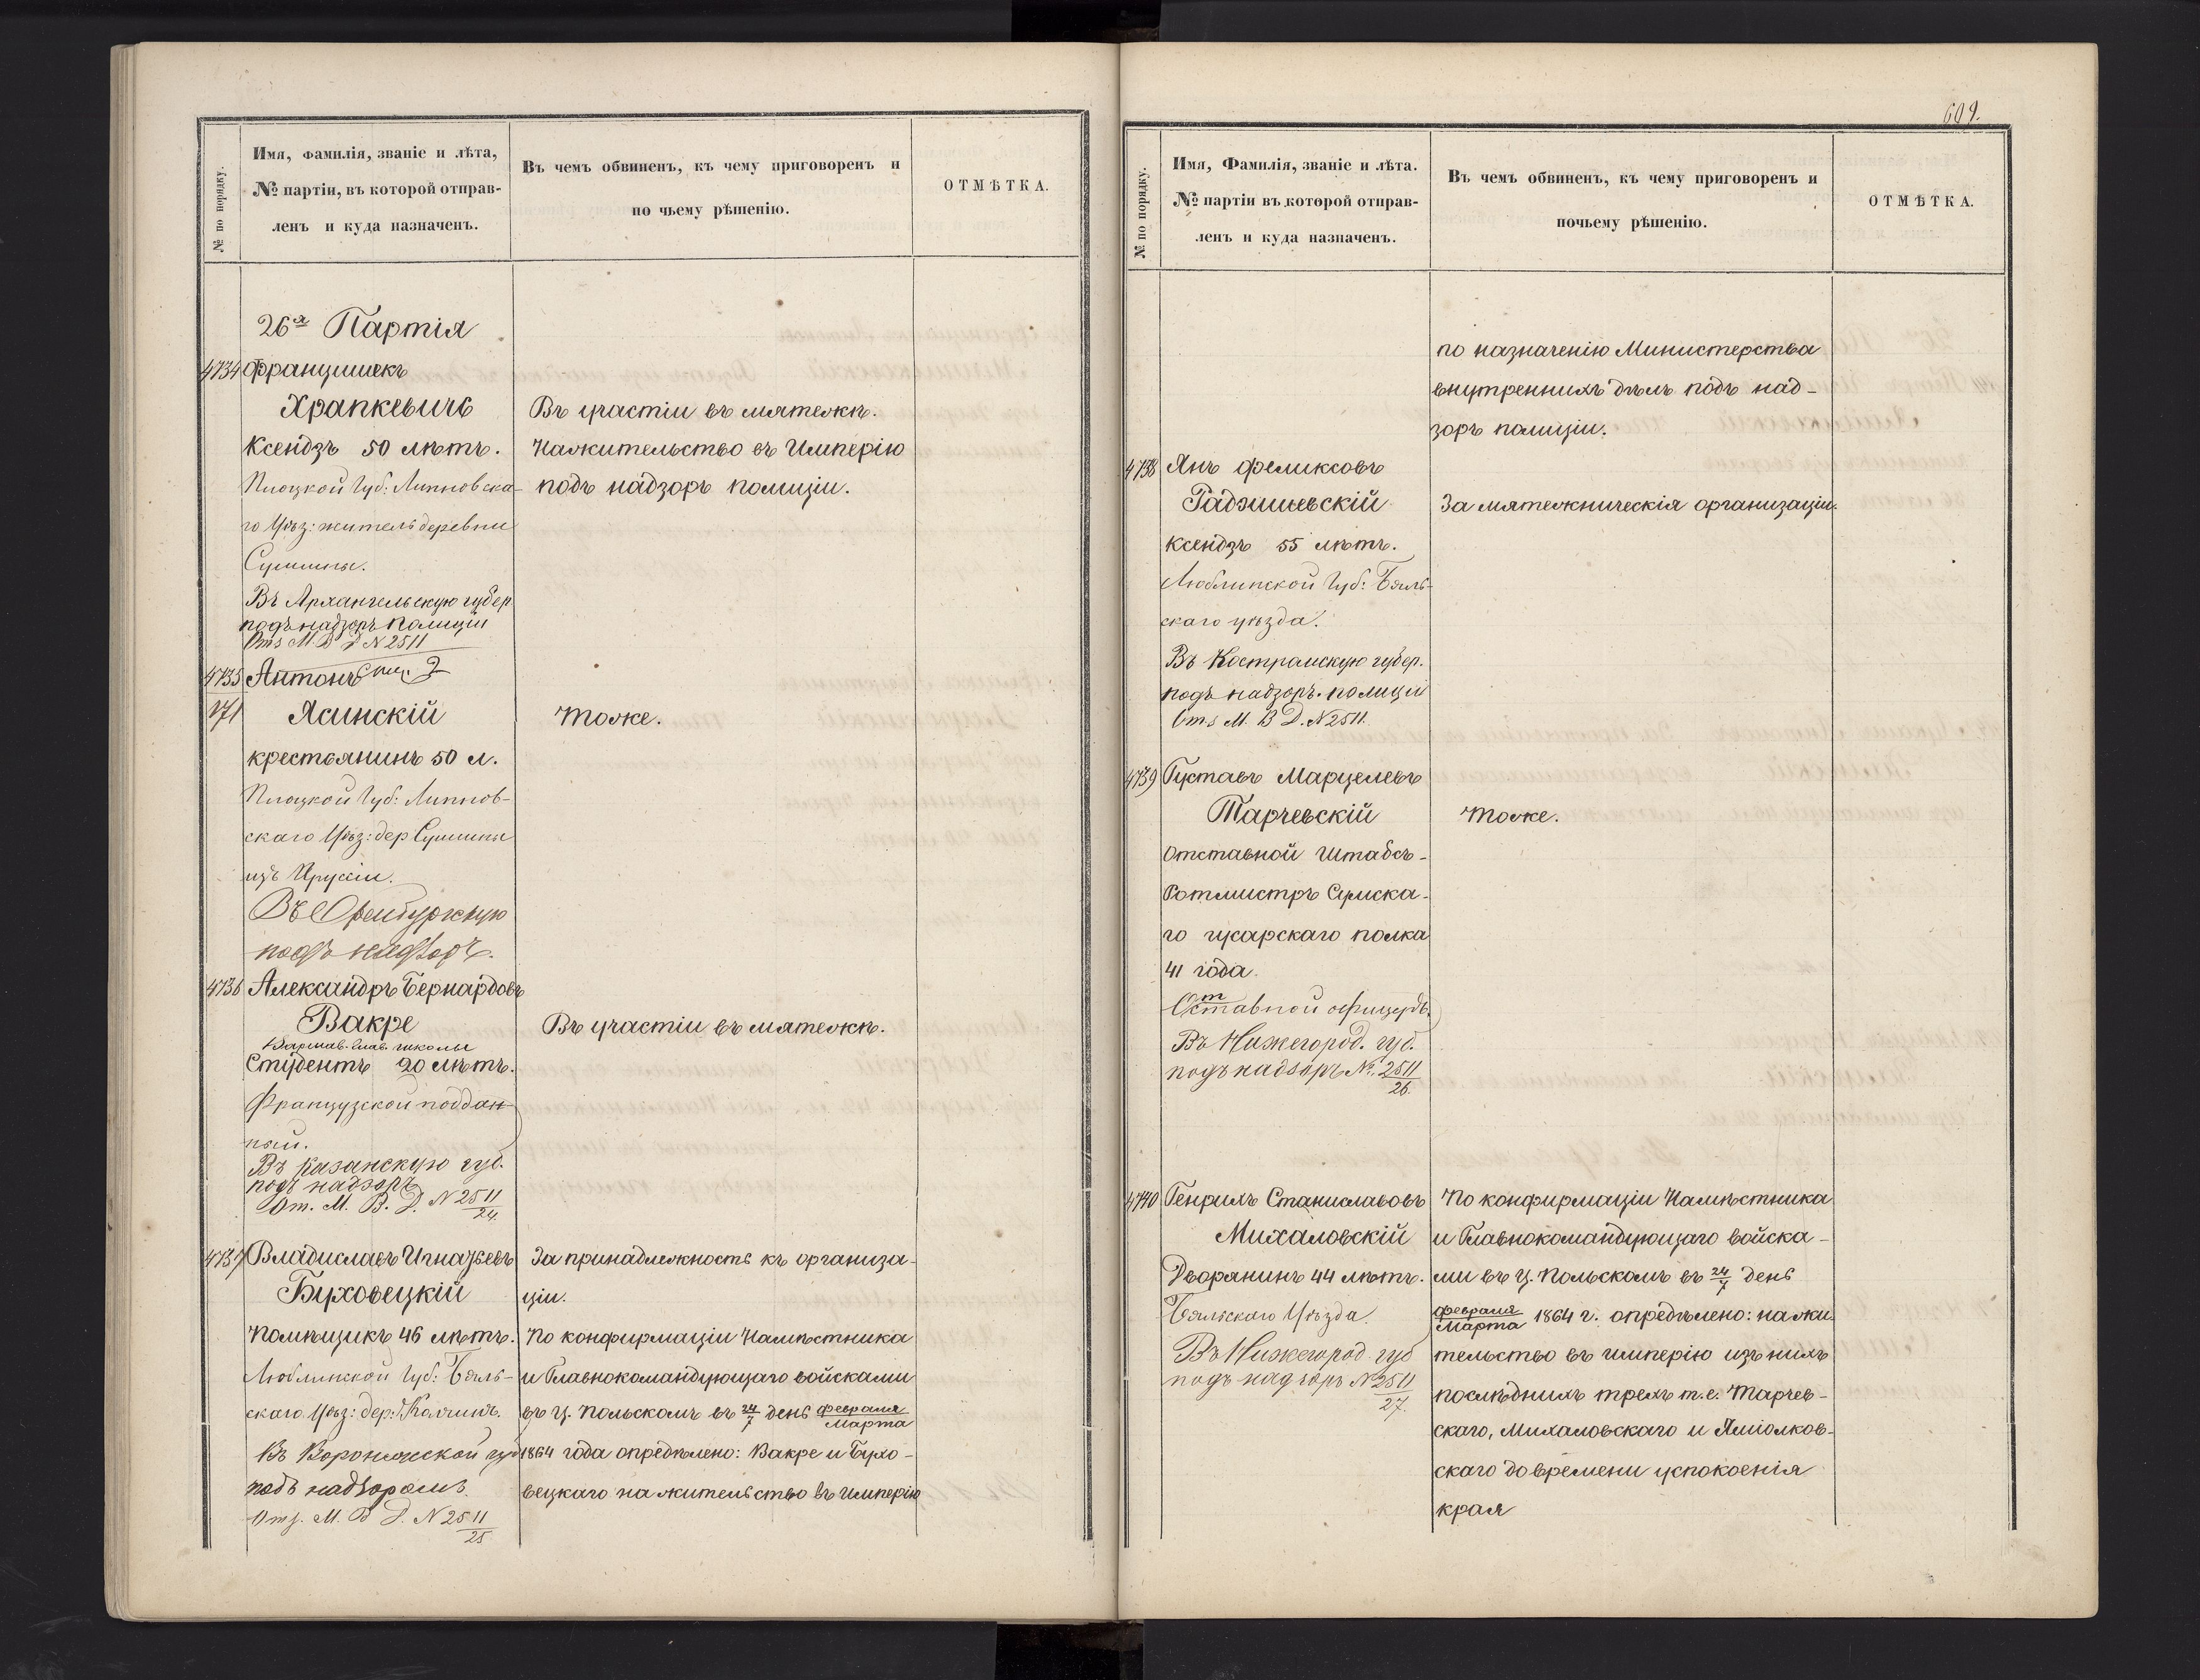 № по порядку.
Имя, фамилія, званіе и лѣта,
№ партіи, въ которой отправ-
ленъ и куда назначенъ.
Въ чемъ обвиненъ, къ чему приговоренъ и
по чьему рѣшенію.
ОТМѢТКА.
26я Партія
4734 Францишекъ
Храпкевичъ
Ксендзъ 50 лѣтъ.
Плоцкой Губ: Липновска-
го Уѣз: житель деревни
Сумины.
Въ Архангельскую губер
подъ надзоръ полиціи
От М В Д N 2511
Въ участіи въ мятежѣ.
На жительство въ Имперію
подъ надзоръ полиціи.
4735 Антонъ
171
Ясинскій
крестьянинъ 50 л.
Плоцкой Губ: Липнов-
скаго Уѣз: дер Сумины
изъ Пруссіи.
Въ Оренбургскую
подъ надзоръ.
тоже.
4736 Александръ Бернардовъ
Вакре
Варшав. Глав. школы
Студентъ 20 лѣтъ.
Французской поддан
ный.
Въ Казанскую губ.
подъ надзоръ
От. М. В. Д. N 2511
24.
Въ участіи въ мятежѣ.
4737 Владиславъ Игнатьевъ
Буховецкій
Помѣщикъ 46 лѣтъ.
Люблинской Губ: Бяль-
скаго Уѣз: дер:
Въ Воронежской губ
подъ надзоромъ.
От. М. В Д. N 2511
25
За принадлежность къ организа-
ціи.
По конфирмаціи Намѣстника
и Главнокомандующаго войсками
въ Ц. Польскомъ въ 24/7 день февраля/Марта
1864 года опредѣлено: Вакре и Бухо-
вецкаго на жительство въ Имперію
609.
№ по порядку.
Имя, Фамилія, званіе и лѣта.
№ партіи въ которой отправ-
ленъ и куда назначенъ.
Въ чемъ обвиненъ, къ чему приговоренъ и
почьему рѣшенію.
ОТМѢТКА.
по назначенію Министерства
внутреннихъ дѣлъ подъ над-
зоръ полиціи.
4738 Янъ Феликсовъ
Радзишевскій
Ксендзъ 55 лѣтъ.
Люблинской Губ: Бяль-
скаго уѣзда.
Въ Костромскую губер.
подъ надзоръ полиціи
От М. В Д. N 2511.
За мятежническія организаціи.
4739 Густавъ Марцелевъ
Тарчевскій
Отставной Штабсъ-
Ротмистръ Сумска-
го гусарскаго полка
41 года.
Отставной офицеръ.
Въ Нижегород. губ.
подъ надзоръ №. 2511
26.
тоже.
4740 Генрихъ Станиславовъ
Михаловскій
Дворянинъ 44 лѣтъ.
Бяльскаго Уѣзда.
Въ Нижегород. губ
подъ надзоръ N 2511
27.
По конфирмаціи Намѣстника
и Главнокомандующаго войска-
ми въ Ц. Польскомъ въ 24/7 день
февраля/Марта 1864 г. опредѣлено: на жи-
тельство въ имперію изъ нихъ
послѣднихъ трехъ т.е. Тарчев-
скаго, Михаловскаго и Яміолков-
скаго до времени успокоенія
края